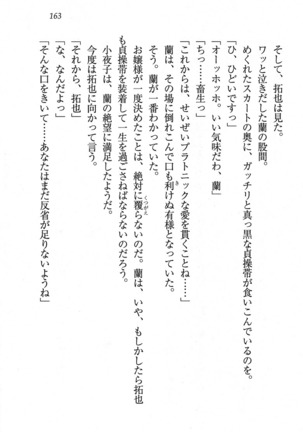 163
そして、拓也は見た。
ワッと泣きだした蘭の股間。
めくれたスカートの奥に、ガッチリと真っ黒な貞操帯が食いこんでいるのを。
「ひ、ひどいですっ」
「オーッホッホ。いい気味だわ、蘭」
「ちっ……畜生っ」
「これからは、せいぜいプラトニックな愛を貫くことね……」
蘭は、その場に倒れこんで口も利けぬ有様となっていた。
そう。蘭が一番わかっていた。
お嬢様が一度決めたことは、絶対に覆らないのだ。蘭は、いや、もしかしたら拓也
も貞操帯を装着して一生を過ごさねばならないのだろう。
小夜子は、蘭の絶望に満足したようだ。
今度は拓也に向かって言う。
「それから、拓也」
「な、なんだよっ」
「そんな口をきいて……あなたはまだ反省が足りないようね」